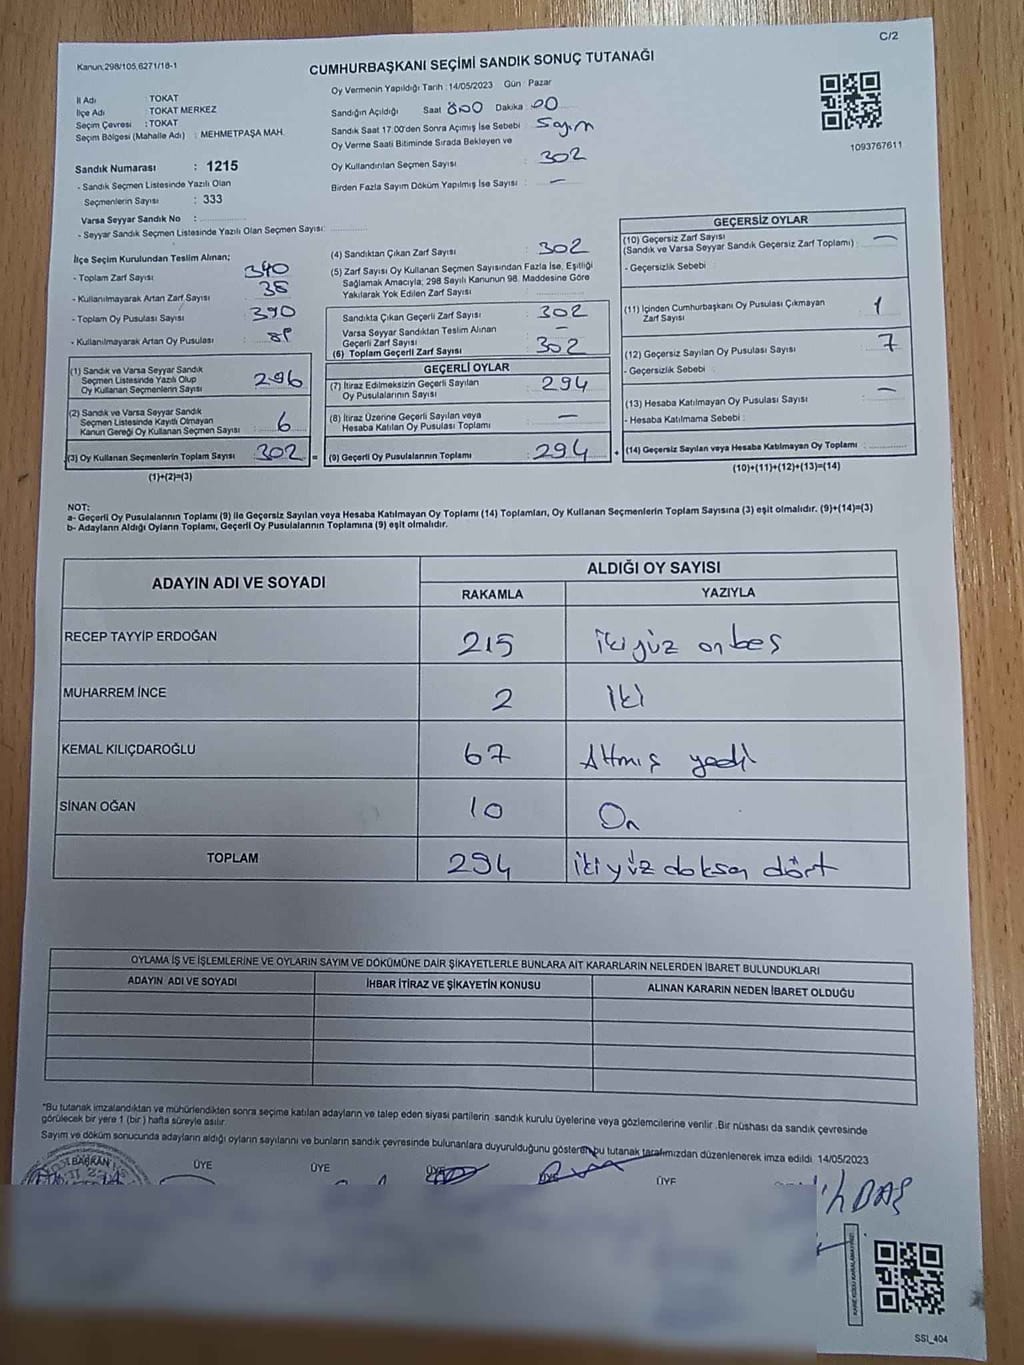 C/2
Kanun:298/105,6271/18-1
CUMHURBAŞKANI SEÇİMİ SANDIK SONUÇ TUTANAĞI
İl Adı : TOKAT
İlçe Adı : TOKAT MERKEZ
Seçim Çevresi : TOKAT
Seçim Bölgesi (Mahalle Adı) : MEHMETPAŞA MAH.
Oy Vermenin Yapıldığı Tarih :14/05/2023 Gün : Pazar
Sandığın Açıldığı Saat 800 Dakika 00
Sandık Saat 17:00'den Sonra Açımış İse Sebebi Sayım
Oy Verme Saati Bitiminde Sırada Bekleyen ve
Oy Kullandırılan Seçmen Sayısı : 302
Birden Fazla Sayım Döküm Yapılmış İse Sayısı : —
1093767611
Sandık Numarası : 1215
- Sandık Seçmen Listesinde Yazılı Olan
Seçmenlerin Sayısı : 333
Varsa Seyyar Sandık No :
- Seyyar Sandık Seçmen Listesinde Yazılı Olan Seçmen Sayısı:
İlçe Seçim Kurulundan Teslim Alınan;
- Toplam Zarf Sayısı : 340
- Kullanılmayarak Artan Zarf Sayısı : 38
- Toplam Oy Pusulası Sayısı : 390
- Kullanılmayarak Artan Oy Pusulası :
(1) Sandık ve Varsa Seyyar Sandık
Seçmen Listesinde Yazılı Olup
Oy Kullanan Seçmenlerin Sayısı : 296
(2) Sandık ve Varsa Seyyar Sandık
Seçmen Listesinde Kayıtlı Olmayan
Kanun Gereği Oy Kullanan Seçmen Sayısı : 6
(3) Oy Kullanan Seçmenlerin Toplam Sayısı : 302 =
(1)+(2)=(3)
(4) Sandıktan Çıkan Zarf Sayısı : 302
(5) Zarf Sayısı Oy Kullanan Seçmen Sayısından Fazla İse, Eşitliği
Sağlamak Amacıyla; 298 Sayılı Kanunun 98. Maddesine Göre
Yakılarak Yok Edilen Zarf Sayısı :
Sandıkta Çıkan Geçerli Zarf Sayısı : 302
Varsa Seyyar Sandıktan Teslim Alınan
Geçerli Zarf Sayısı : —
(6) Toplam Geçerli Zarf Sayısı : 302
GEÇERLİ OYLAR
(7) İtiraz Edilmeksizin Geçerli Sayılan
Oy Pusulalarının Sayısı : 294
(8) İtiraz Üzerine Geçerli Sayılan veya
Hesaba Katılan Oy Pusulası Toplamı : —
(9) Geçerli Oy Pusulalarının Toplamı : 294 +
GEÇERSİZ OYLAR
(10) Geçersiz Zarf Sayısı
(Sandık ve Varsa Seyyar Sandık Geçersiz Zarf Toplamı) : —
- Geçersizlik Sebebi :
(11) İçinden Cumhurbaşkanı Oy Pusulası Çıkmayan
Zarf Sayısı : 1
(12) Geçersiz Sayılan Oy Pusulası Sayısı : 7
- Geçersizlik Sebebi :
(13) Hesaba Katılmayan Oy Pusulası Sayısı : —
- Hesaba Katılmama Sebebi :
(14) Geçersiz Sayılan veya Hesaba Katılmayan Oy Toplamı :
(10)+(11)+(12)+(13)=(14)
NOT:
a- Geçerli Oy Pusulalarının Toplamı (9) ile Geçersiz Sayılan veya Hesaba Katılmayan Oy Toplamı (14) Toplamları, Oy Kullanan Seçmenlerin Toplam Sayısına (3) eşit olmalıdır. (9)+(14)=(3)
b- Adayların Aldığı Oyların Toplamı, Geçerli Oy Pusulalarının Toplamına (9) eşit olmalıdır.
ADAYIN ADI VE SOYADI
ALDIĞI OY SAYISI
RAKAMLA YAZIYLA
RECEP TAYYİP ERDOĞAN 215 ikiyüz onbeş
MUHARREM İNCE 2 iki
KEMAL KILIÇDAROĞLU 67 Altmış yedi
SİNAN OĞAN 10 On
TOPLAM 294 ikiyüz doksan dört
OYLAMA İŞ VE İŞLEMLERİNE VE OYLARIN SAYIM VE DÖKÜMÜNE DAİR ŞİKAYETLERLE BUNLARA AİT KARARLARIN NELERDEN İBARET BULUNDUKLARI
ADAYIN ADI VE SOYADI İHBAR İTİRAZ VE ŞİKAYETİN KONUSU ALINAN KARARIN NEDEN İBARET OLDUĞU
*Bu tutanak imzalandıktan ve mühürlendikten sonra seçime katılan adayların ve talep eden siyasi partilerin sandık kurulu üyelerine veya gözlemcilerine verilir .Bir nüshası da sandık çevresinde
görülecek bir yere 1 (bir ) hafta süreyle asılır
Sayım ve döküm sonucunda adayların aldığı oyların sayılarını ve bunların sandık çevresinde bulunanlara duyurulduğunu gösteren bu tutanak tarafımızdan düzenlenerek imza edildi 14/05/2023
BAŞKAN ÜYE ÜYE ÜYE ÜYE ÜYE
KARE KODU KARALAMAYINIZ!
SSI_404